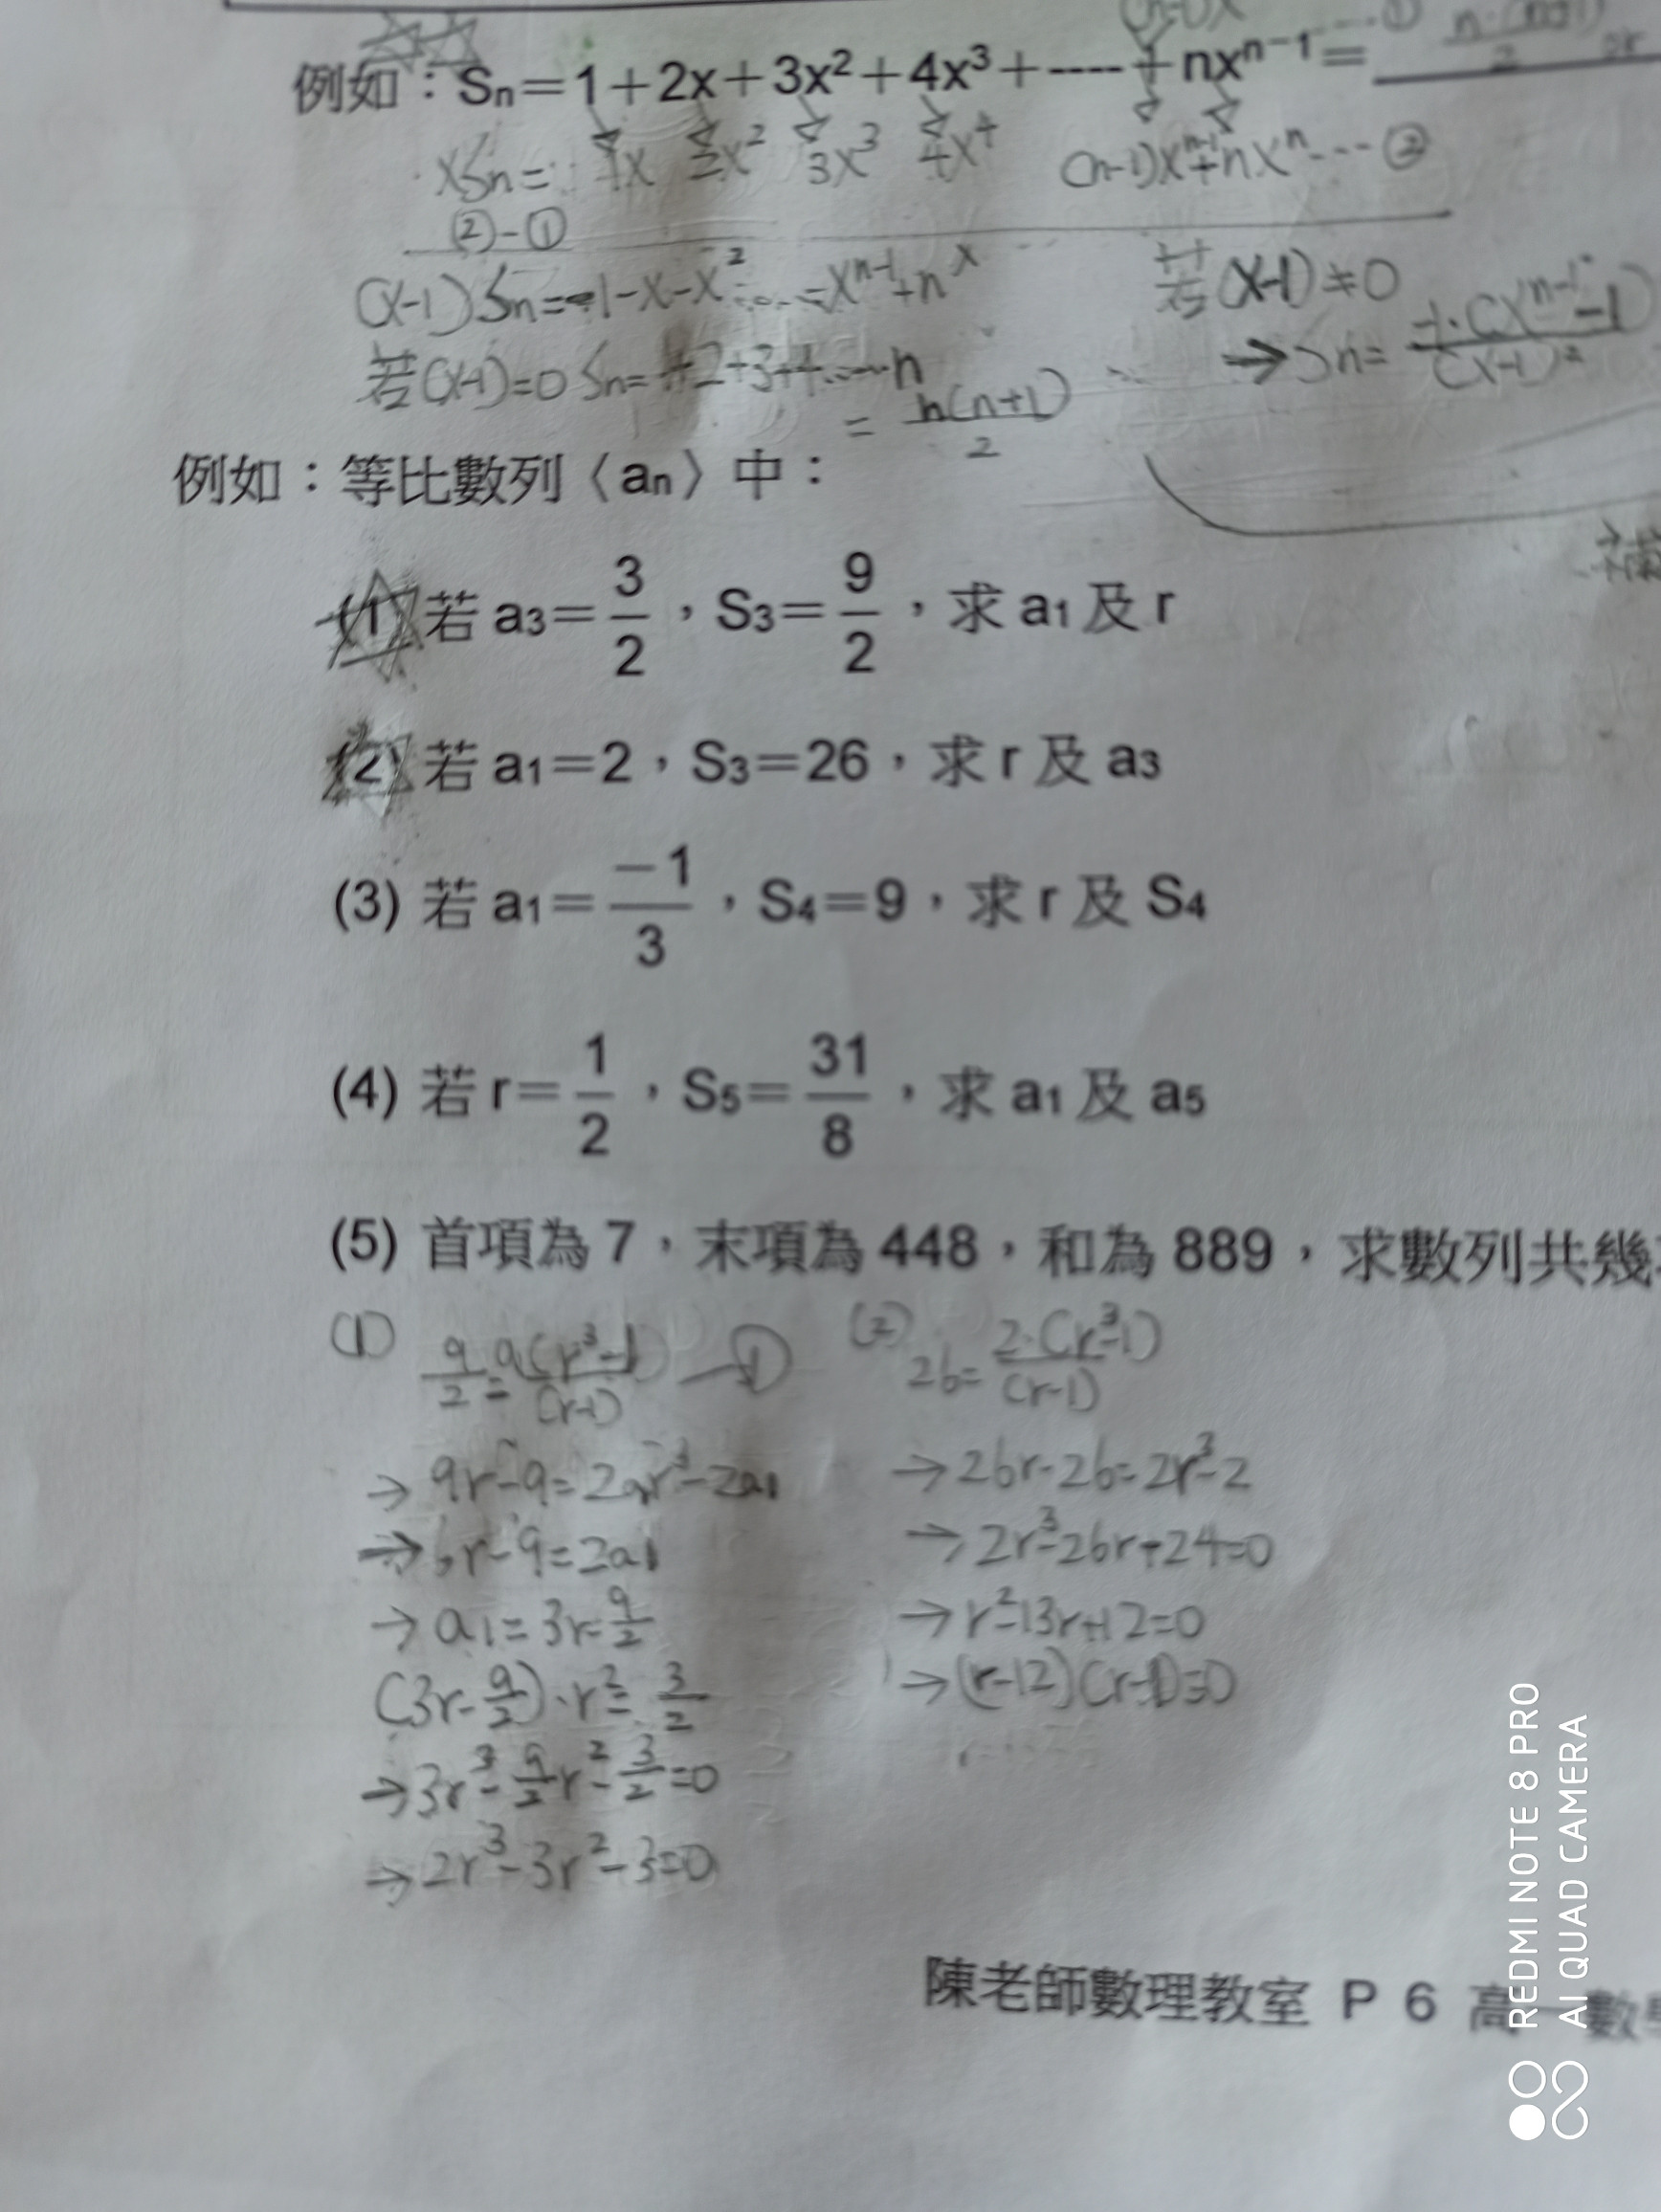 例如：Sn＝1＋2x＋3x²＋4x³＋----＋nxⁿ⁻¹＝
xSn= 1x 2x² 3x³ 4x⁴ (n-1)xⁿ⁻¹+nxⁿ---②
②-①
(x-1)Sn=
若(x-1)≠0
若(x-1)=0 Sn=1+2+3+4……n
= n(n+1)/2
→Sn=
例如：等比數列〈an〉中：
(1) 若 a3＝3/2，S3＝9/2，求 a1 及 r
(2) 若 a1＝2，S3＝26，求 r 及 a3
(3) 若 a1＝－1/3，S4＝9，求 r 及 S4
(4) 若 r＝1/2，S5＝31/8，求 a1 及 a5
(5) 首項為 7，末項為 448，和為 889，求數列共幾
(1) 9/2=a(r³-1)/(r-1) —①
→ 9r-9=2a1r³-2a1
→ r-9=2a1
→ a1=3r-9/2
(3r-9/2)·r²=3/2
→3r³-9/2r²-3/2=0
→2r³-3r²-3=0
(2) 26=2·(r³-1)/(r-1)
→26r-26=2r³-2
→2r³-26r+24=0
→r²-13r+12=0
→(r-12)(r-1)=0
陳老師數理教室 P 6 高一數
REDMI NOTE 8 PRO
AI QUAD CAMERA